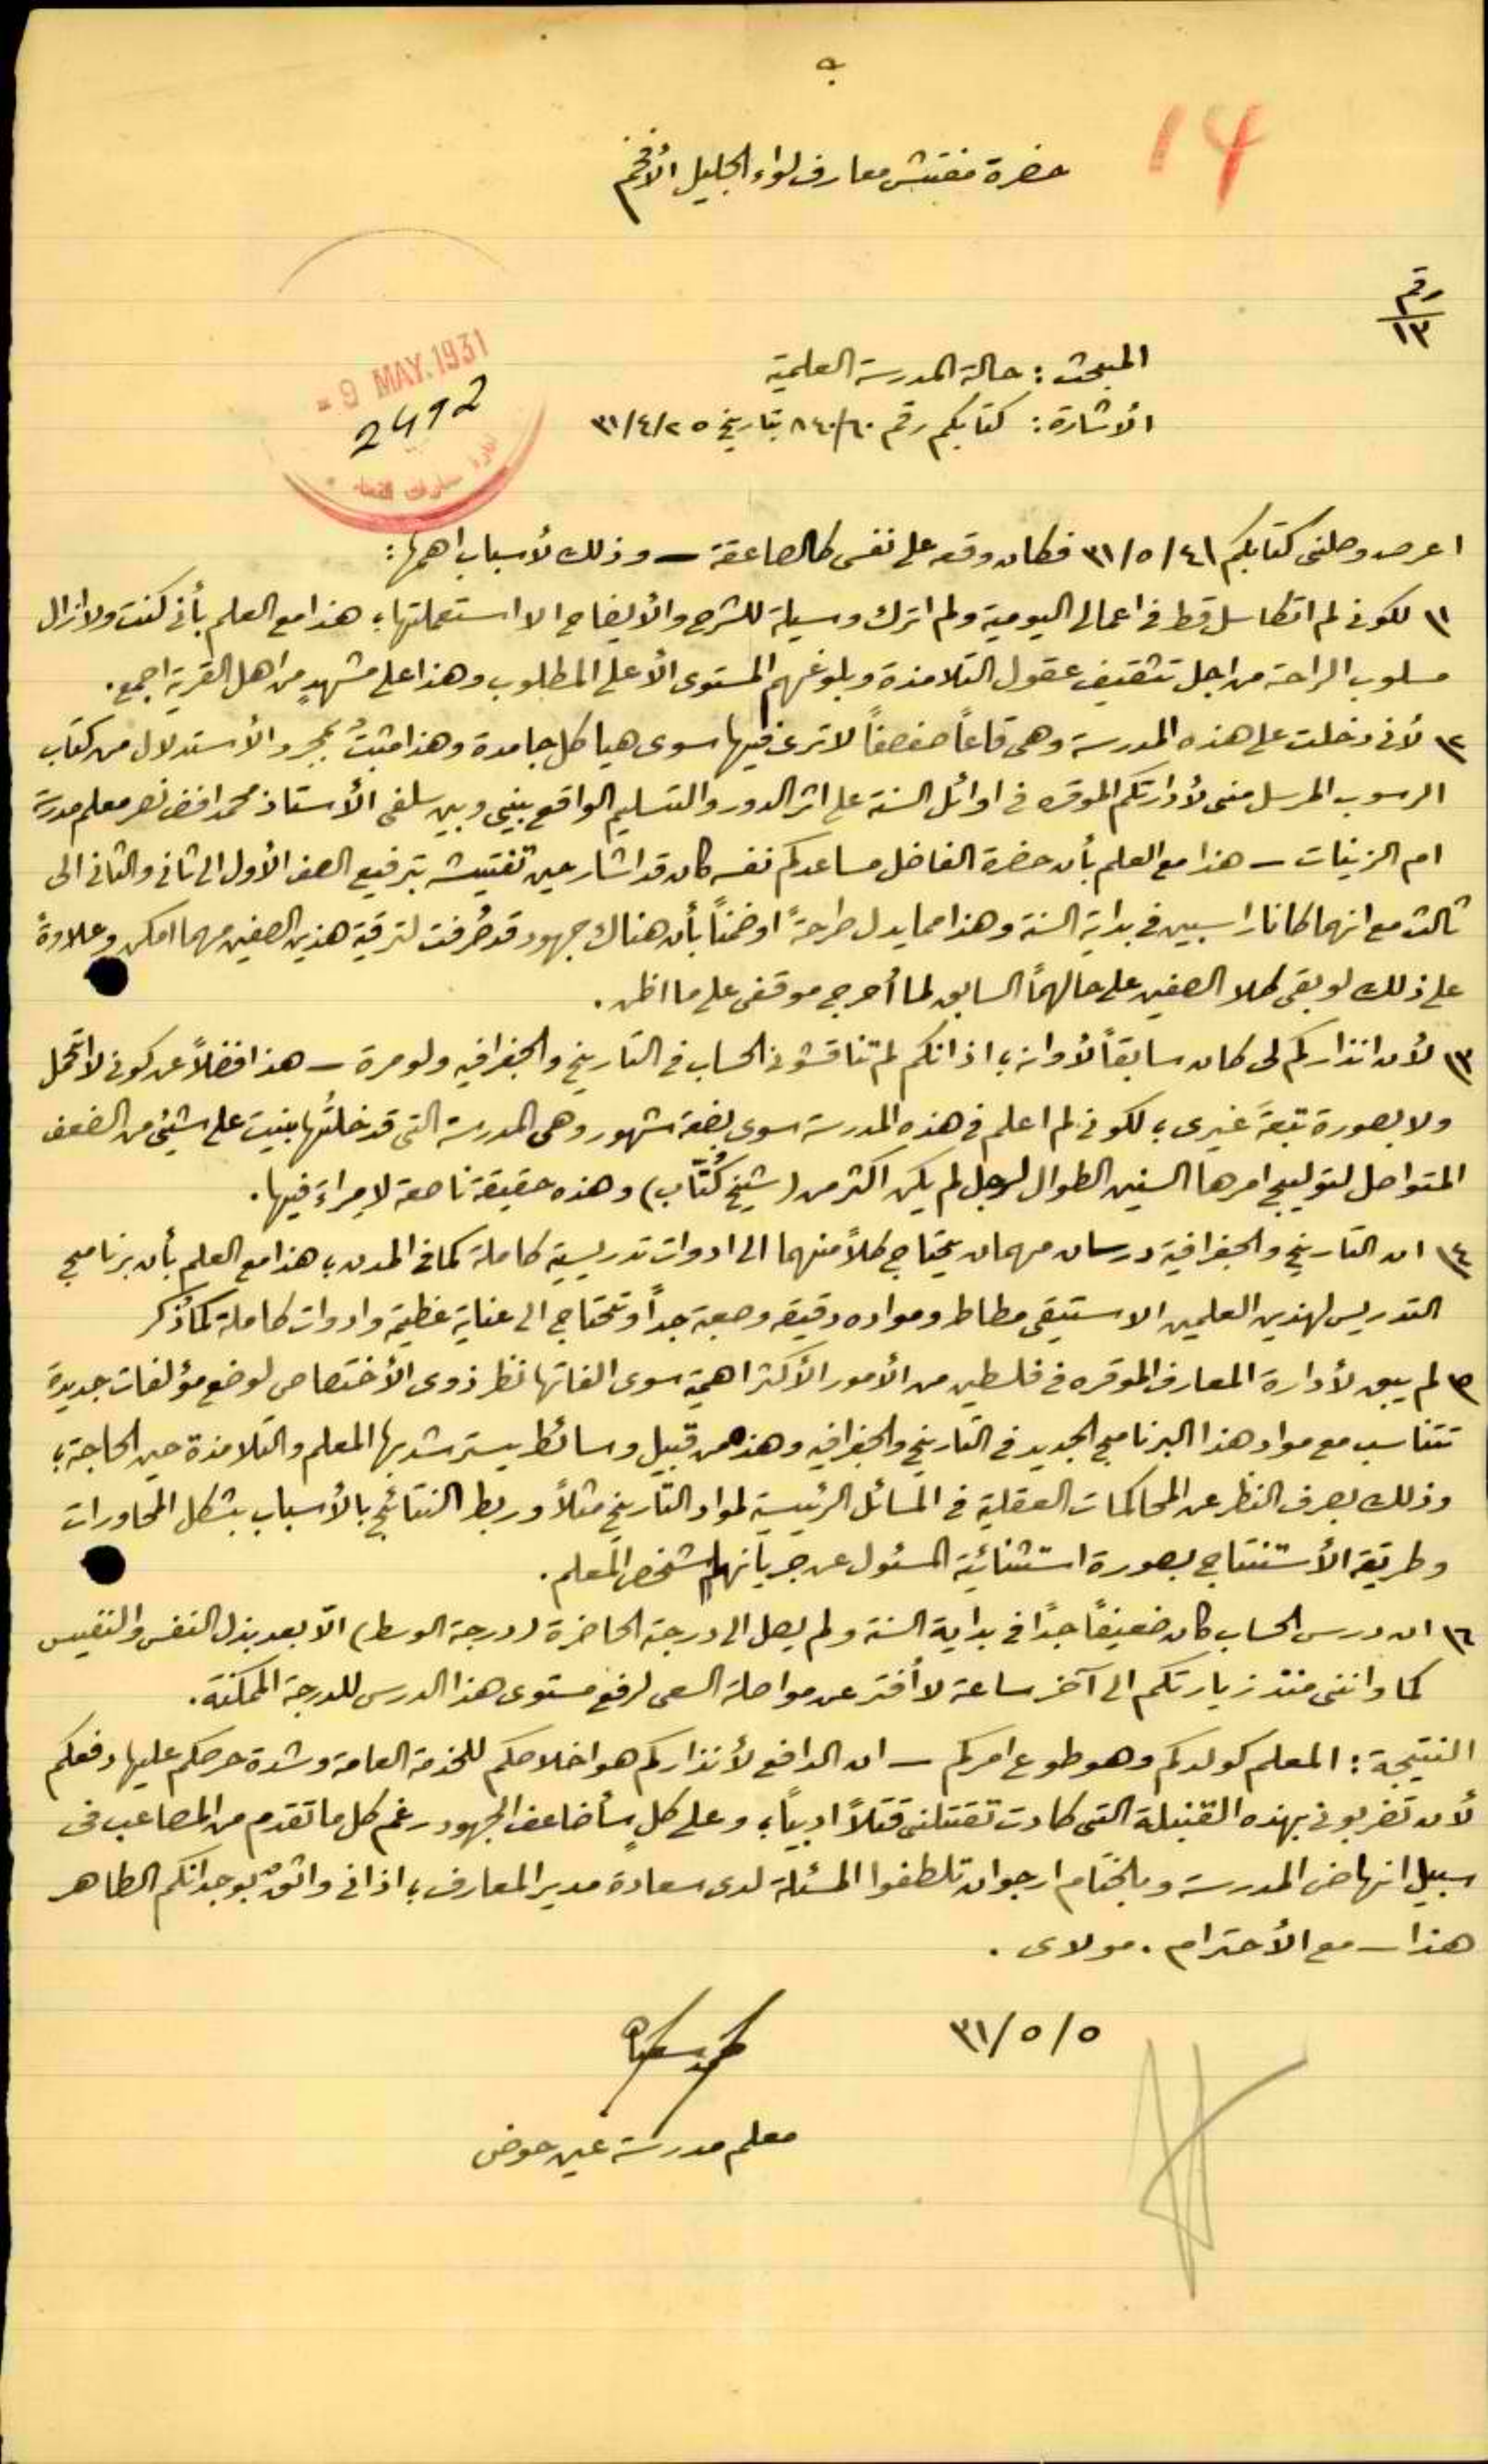 14
حضرة مفتش معارف لواء الجليل الأفخم
رقم
١٣
= 9 MAY. 1931
2492
المبحث : حالة المدرسة العلمية
الأشارة : كتابكم رقم ٨٤٠/٦٠ بتاريخ ٣١/٤/٢٥
اعرض وصلني كتابكم ٣١/٥/٤١ فكان وقعه على نفسي كالصاعقة – وذلك لأسباب اهمها :
١) لكوني لم اتكاسل قط في اعمالي اليومية ولم اترك وسيلة للشرح والأيضاح الا استعملتها ، هذا مع العلم بأني كنت ولا ازال
مسلوب الراحة من اجل تثقيف عقول التلامذة وبلوغهم المستوى الأعلى المطلوب وهذا على مشهدٍ من اهل القرية اجمع .
٢) لأني دخلت على هذه المدرسة وهي قاعاً صفصفاً لا ترى فيها سوى هياكل جامدة وهذا مثبتٌ بمجرد الأستدلال من كتاب
الرسوب المرسل مني لأدارتكم الموقره في اوائل السنة على اثر الدور والتسليم الواقع بيني وبين سلفي الأستاذ محمد افندي نصر معلم مدرسة
ام الزينات – هذا مع العلم بأن حضرة الفاضل مساعدكم نفسه كان قد اشار حين تفتيشه بترفيع الصف الأول الى ثاني والثاني الى
ثالث مع انهما كانا راسبين في بداية السنة وهذا مما يدل صراحةً او ضمناً بأن هناك جهود قد صُرفت لترقية هذين الصفين مهما امكن وعلاوةً
على ذلك لو بقي كلا الصفين على حالهما السابق لما أحرج موقفي على ما اظن .
٣) لأن انذاركم لي كان سابقاً لأوانه ، اذ انكم لم تناقشوني الحساب في التاريخ والجغرافيه ولو مرة – هذا فضلاً عن كوني لا اتحمل
ولا بصورة تبعةً غيري ، لكوني لم اعلم في هذه المدرسة سوى بضعة شهور وهي المدرسة التي قد دخلتُها بنيت على شيئ من الضعف
المتواصل لتوليج امرها السنين الطوال لرجل لم يكن اكثر من (شيخ كُتّاب) وهذه حقيقة ناصعة لا مراءَ فيها .
٤) ان التاريخ والجغرافية درسان مهمان يحتاج كلاً منهما الى ادوات تدريسية كاملة كما في المدن ، هذا مع العلم بأن برنامج
التدريس لهذين العلمين الاستيقي مطاط ومواده دقيقه وصعبة جداً وتحتاج الى عناية عظيمة وادوات كاملة كما ذُكر
٥) لم يبق لأدارة المعارف الموقره في فلسطين من الأمور الأكثر اهمية سوى الفاتها نظر ذوي الأختصاص لوضع مؤلفات جديدة
تتناسب مع مواد هذا البرنامج الجديد في التاريخ والجغرافيه وهذه من قبيل وسائط يسترشد بها المعلم والتلامذة حين الحاجة ،
وذلك بصرف النظر عن المحاكمات العقلية في المسائل الرئيسية لمواد التاريخ مثلاً وربط النتائج بالأسباب بشكل المحاورات
وطريقة الأستنتاج بصورة استثنائية المسئول عن جريانها شخص المعلم .
٦) ان درس الحساب كان ضعيفاً جداً في بداية السنة ولم يصل الى درجة الحاضرة (درجة الوسط) الّا بعد بذل النفس والنفيس
كما وانني منذ زيارتكم الى آخر ساعة لا أفتر عن مواصلة السعي لرفع مستوى هذا الدرس للدرجة الممكنة .
النتيجة : المعلم كولدكم وهو طوع امركم – ان الدافع لأنذاركم هو اخلاصكم للخدمة العامة وشدة حرصكم عليها دفعكم
لأن تضربوني بهذه القنبلة التي كادت تقتلني قتلاً ادبياً ، وعلى كلٍ سأضاعف المجهود رغم كل ما تقدم من المصاعب في
سبيل انهاض المدرسة وبالختام ارجو ان تلطفوا المسئلة لدى سعادة مدير المعارف ، اذ اني واثقٌ بوجدانكم الطاهر
هذا – مع الأحترام . مولاي .
٣١/٥/٥
معلم مدرسة عين حوض